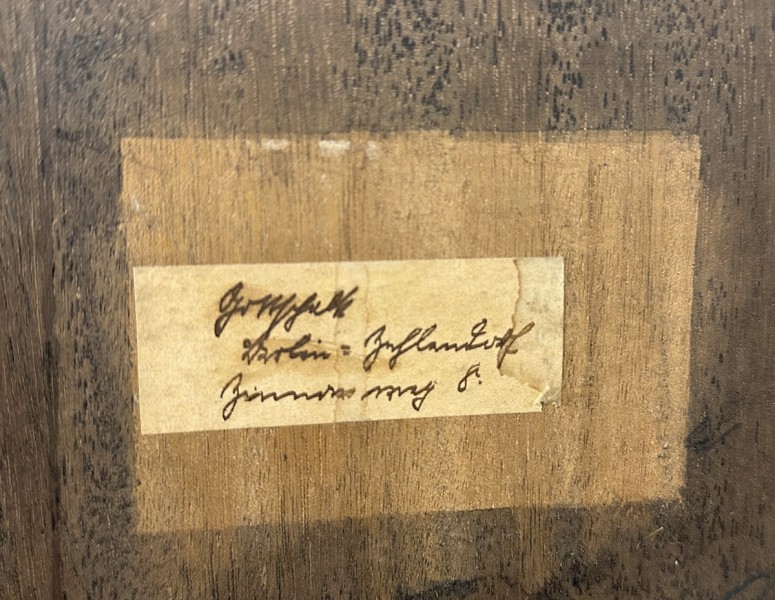 Gottschalk
Berlin = Zehlendorf
Zinnowweg 8.